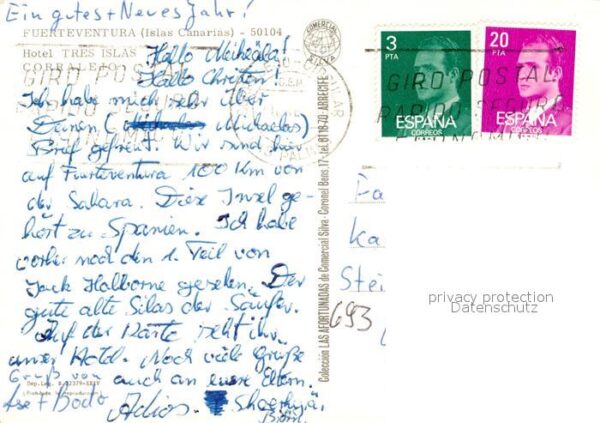 Ein gutes + Neues Jahr!
FUERTEVENTURA (Islas Canarias) - 50104
Hotel TRES ISLAS
CORRALEJO
Hallo Michaela!
Hallo
Ich habe mich sehr über
Deinen ( Michaelas)
Brief gefreut. Wir sind hier
auf Fuerteventura 100 km von
der Sahara. Diese Insel ge-
hört zu Spanien. Ich habe
vorher noch den 1. Teil von
Jack Holborne gesehen. Der
gute alte Silas der Säufer.
Auf der Karte seht ihr
unser Hotel. Noch viele Grüße
auch an eure Eltern.
Gruß von
+ Bodo
Adios.
Björn
Dep. Leg. B.
(Prohibida la reproducción)
COMERCIAL
SILVA
GIRO POSTAL
Colección LAS AFORTUNADAS de Comercial Silva - Coronel Bens, 17 - ARRECIFE
3
PTA
ESPAÑA
CORREOS
20
PTA
ESPAÑA
CORREOS
GIRO POSTAL
RAPIDO SEGURO
Fa
Ka
Stei
693
privacy protection
Datenschutz